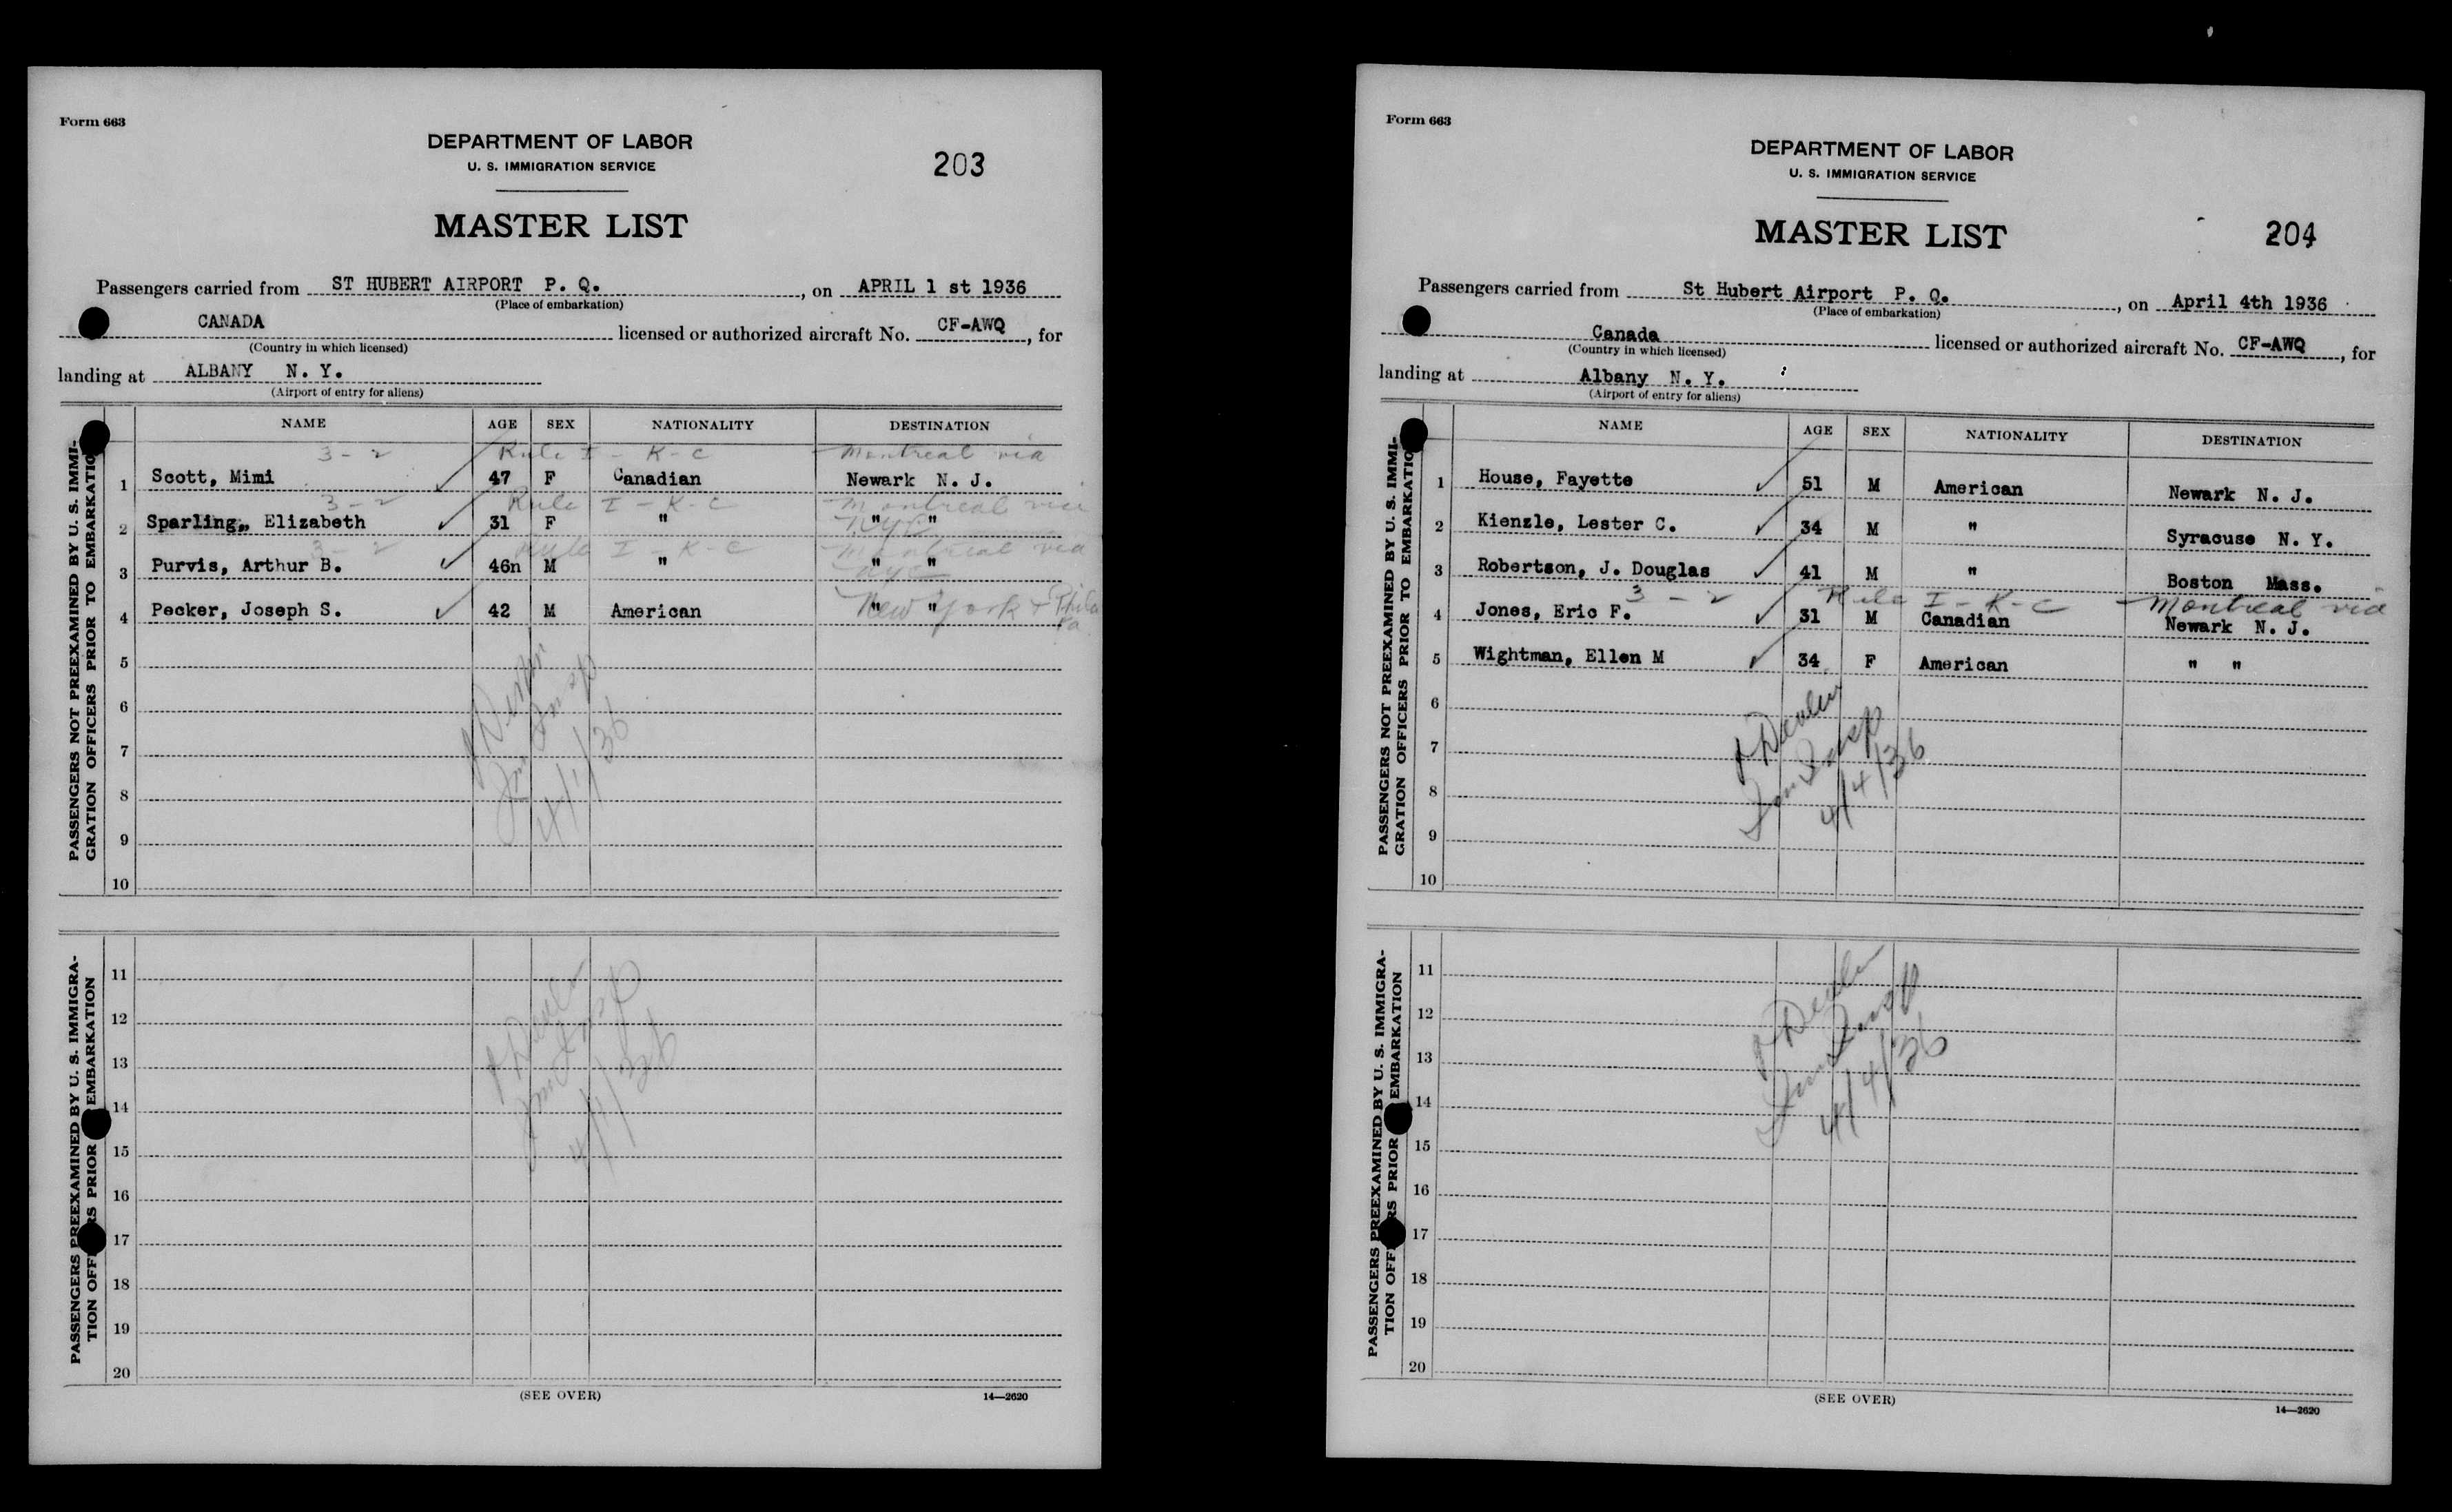 Form 663
DEPARTMENT OF LABOR
U. S. IMMIGRATION SERVICE
203
MASTER LIST
Passengers carried from ST HUBERT AIRPORT P. Q., on APRIL 1 st 1936
(Place of embarkation)
CANADA licensed or authorized aircraft No. CF-AWQ, for
(Country in which licensed)
landing at ALBANY N. Y.
(Airport of entry for aliens)
PASSENGERS NOT PREEXAMINED BY U. S. IMMI-
GRATION OFFICERS PRIOR TO EMBARKATION
NAME AGE SEX NATIONALITY DESTINATION
3-2 Rule I-K-C Montreal via
1 Scott, Mimi 47 F Canadian Newark N. J.
3-2 Rule I-K-C Montreal via
2 Sparling, Elizabeth 31 F " " "
NYC
3-2 Rule I-K-C Montreal via
3 Purvis, Arthur B. 46n M " " "
NYC
4 Pecker, Joseph S. 42 M American " "
New York + Phila
Pa
5
6
7
8
9
10
Imm Insp
4/1/36
PASSENGERS PREEXAMINED BY U. S. IMMIGRA-
TION OFFICERS PRIOR EMBARKATION
11
12
13
14
15
16
17
18
19
20
Imm Insp
4/1/36
(SEE OVER)
14—2620
Form 663
DEPARTMENT OF LABOR
U. S. IMMIGRATION SERVICE
MASTER LIST
204
Passengers carried from St Hubert Airport P. Q., on April 4th 1936
(Place of embarkation)
Canada licensed or authorized aircraft No. CF-AWQ, for
(Country in which licensed)
landing at Albany N. Y.
(Airport of entry for aliens)
PASSENGERS NOT PREEXAMINED BY U. S. IMMI-
GRATION OFFICERS PRIOR TO EMBARKATION
NAME AGE SEX NATIONALITY DESTINATION
1 House, Fayette 51 M American Newark N. J.
2 Kienzle, Lester C. 34 M " Syracuse N. Y.
3 Robertson, J. Douglas 41 M " Boston Mass.
3-2 Rule I-K-C Montreal via
4 Jones, Eric F. 31 M Canadian Newark N. J.
5 Wightman, Ellen M 34 F American " "
6
7
8
9
10
Imm Insp
4/4/36
PASSENGERS PREEXAMINED BY U. S. IMMIGRA-
TION OFFICERS PRIOR EMBARKATION
11
12
13
14
15
16
17
18
19
20
Imm Insp
4/4/36
(SEE OVER)
14—2620